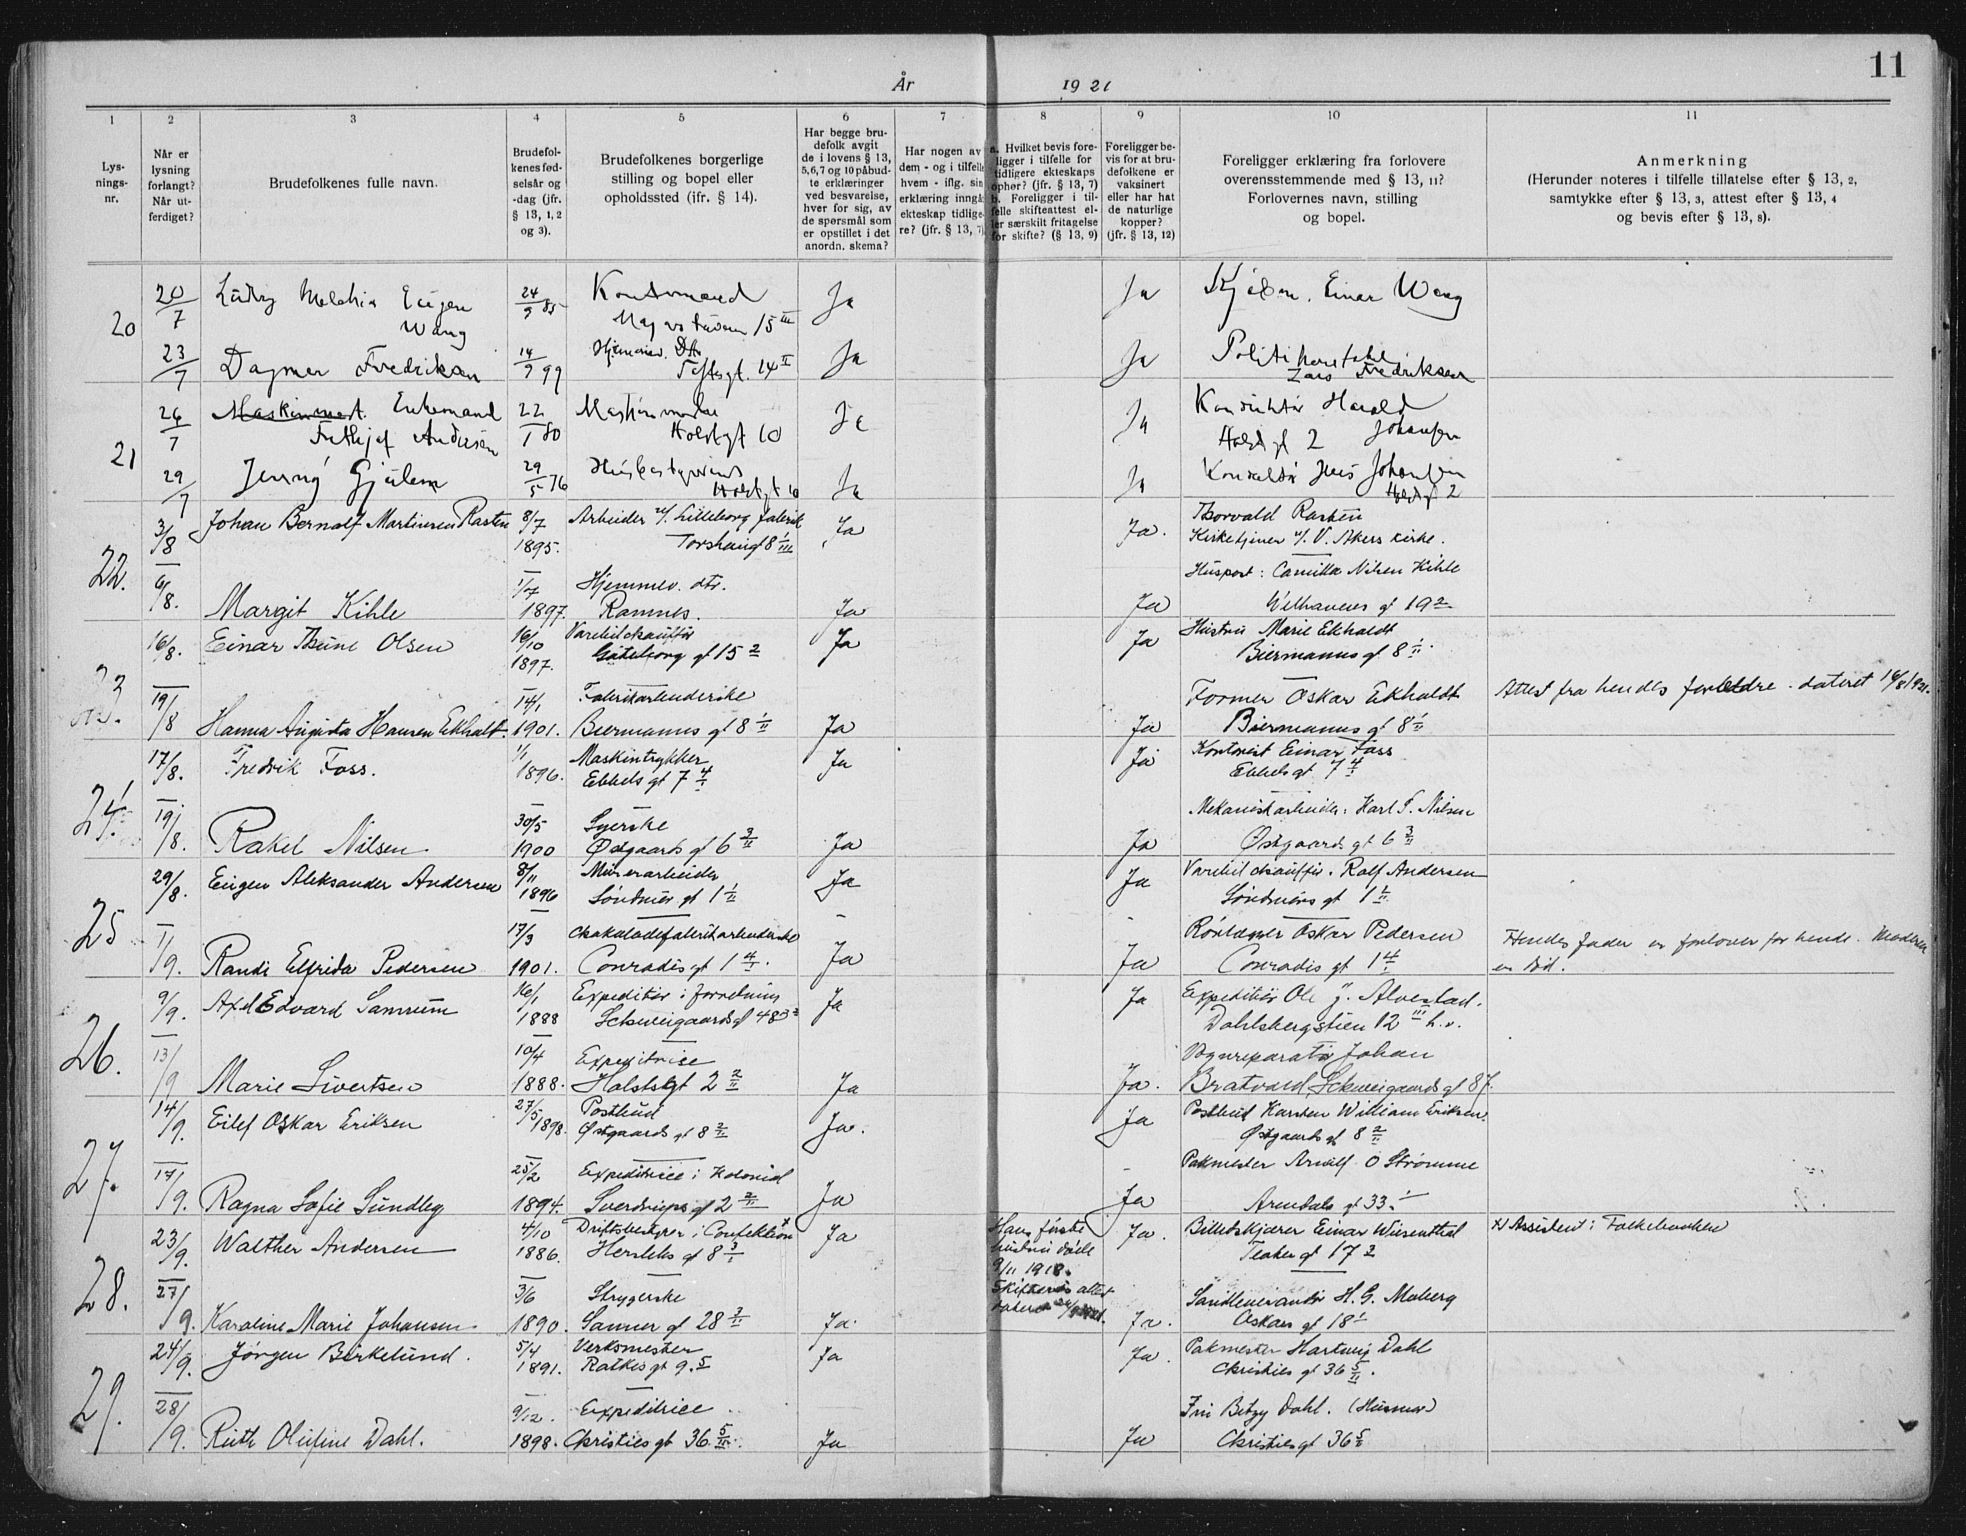 11
År 1921
1 2 3 4 5 6 7 8 9 10 11
Lys-
nings-
nr.
Når er
lysning
forlangt?
Når ut-
ferdiget?
Brudefolkenes fulle navn.
Brudefol-
kenes fød-
selsår og
-dag (jfr.
§ 13, 1, 2
og 3).
Brudefolkenes borgerlige
stilling og bopel eller
opholdssted (ifr. § 14).
Har begge bru-
defolk avgit
de i lovens § 13,
5,6,7 og 10 påbud-
te erklæringer
ved besvarelse,
hver for sig, av
de spørsmål som
er opstillet i det
anordn. skema?
Har nogen av
dem - og i tilfelle
hvem - iflg. sin
erklæring inngå
ekteskap tidlige-
re? (jfr. § 13, 7)
a. Hvilket bevis fore-
ligger i tilfelle for
tidligere ekteskaps
ophør? (jfr. § 13, 7)
b. Foreligger i til-
felle skifteattest el-
ler særskilt fritagelse
for skifte? (§ 13, 9)
Foreligger be-
vis for at bru-
defolkene er
vaksinert
eller har hat
de naturlige
kopper?
(jfr. § 13, 12)
Foreligger erklæring fra forlovere
overensstemmende med § 13, 11?
Forlovernes navn, stilling
og bopel.
Anmerkning
(Herunder noteres i tilfelle tillatelse efter § 13, 2,
samtykke efter § 13, 3, attest efter § 13, 4
og bevis efter § 13, 8).
20
20/7 Eugen 24/9 85 Ja Ja Einar Wang
Wang 15 III
23/7 Dagmar Fredriksen 14/9 99 Hjemmev. Dtr. Ja Ja
Toftesgt. 14 II Lars Fredriksen
21
26/7 Maskinmest. Enkemand 22/1 80 Ja Ja Konduktør Harald
Andersen Holstgt 10 Holstgt 2 Johansen
29/7 Jenny 29/5 76 Husbestyrerinde Ja Ja Johansen
Holstgt 10 Holstgt 2
22.
3/8 Johan Bernolf Martinsen Rasten 8/7 Arbeider v/. Lilleborg fabrik Ja Ja. Thorvald Rasten
1895. Torshauggt 8 I/III Kirketjener v/. V. Akers kirke.
6/8. 1/7 Hjemmev. dtr. Huspost: Camilla Nilsen Kihle
Margit Kihle 1897. Ramnes. Ja Ja Welhavens gt 19 2
23.
16/8. Einar Thune Olsen 16/10 Varebilchauffør Ja Ja Hustru Marie Ekholdt
1897. Gøteborg gt 15 2 Biermanns gt 8 I/II.
19/8 14/1 Fabrikarbeiderske Former Oskar Ekholdt Attest fra hendes foreldre. dateret 16/8 1921.
Hanna Augusta Hansen Ekholt. 1901. Biermanns gt 8 I/II Ja Ja Biermanns gt 8 I/II
24.
17/8. Fredrik Foss. 1/1 Maskintrykker Ja Ja Kontorist Einar Foss
1896. Ebbels gt 7 4/I Ebbels gt 7 4/I
19/8. 30/5 Syerske Mekaniskarbeider: Karl F. Nilsen
Rakel Nilsen 1900 Østgaards gt 6 3/II Ja Ja Østgaards gt 6 3/II
25
29/8. Eugen Aleksander Andersen 8/11 Murerarbeider Ja Ja Varebilchauffør. Rolf Andersen
1896 Søndmørs gt 1 I/II Søndmørs gt 1 I/II
1/9. 17/3 chokoladefabrikarbeiderske Rørlægger Oskar Pedersen Hendes fader er forlover for hende. Moderen
Randi Elfrida Pedersen 1901. Conradis gt 1 4/I. Ja Ja Conradis gt 1 4/I er død.
26.
9/9. Axel Edvard Samrum 16/1 Expeditør i forretning Ja Ja Expeditør Ole J. Alvestad.
1888 Schweigaards gt 48 Dahlsbergstien 12 III h.v.
13/9 10/4 Expeditrice Johan
Marie Sivertsen 1888. Holstsgt 2 2/II Ja Ja. Bratvold, Schweigaards gt 87.
27.
14/9. Eilef Oskar Eriksen 27/5 1898. Postbud Ja. Ja Postbud Karsten William Eriksen.
Østgaards gt 8 2/II Østgaards gt 8 2/II
17/9. 25/2 Expeditrice i Kolonial Pakmester Arnulf O Strømme
Ragna Sofie Sundby 1894. Sverdrups gt 2 2/II Ja Ja Arendals gt 33. I
28.
23/9. Walther Andersen 4/10 Driftsbestyrer i Confektion x Ja Hans første Ja. Billedskjærer Einar Wiesenthal x) Assistent i Folkebanken
1886. Herslebs gt 8 3/I hustru døde Teater gt 17 2
9/11 1918.
27/9. 3/6 Strygerske Skifterets attest Sandleverandør H. G. Moberg
Karoline Marie Johansen 1890. Sanner gt 28 3/II Ja. Ja. Oskars gt 18 I
29.
24/9. Jørgen Birkelund. 5/4 Verksmester Ja Ja. Pakmester Hartvig Dahl
1891. Ratkes gt 9. 5 Christies gt 36 5/II.
28/9. 9/12. Expeditrice Fru Betzy Dahl. (Husmor)
Ruth Olufine Dahl. 1898. Christies gt 36 5/II. Ja Ja Christies gt 36 5/II